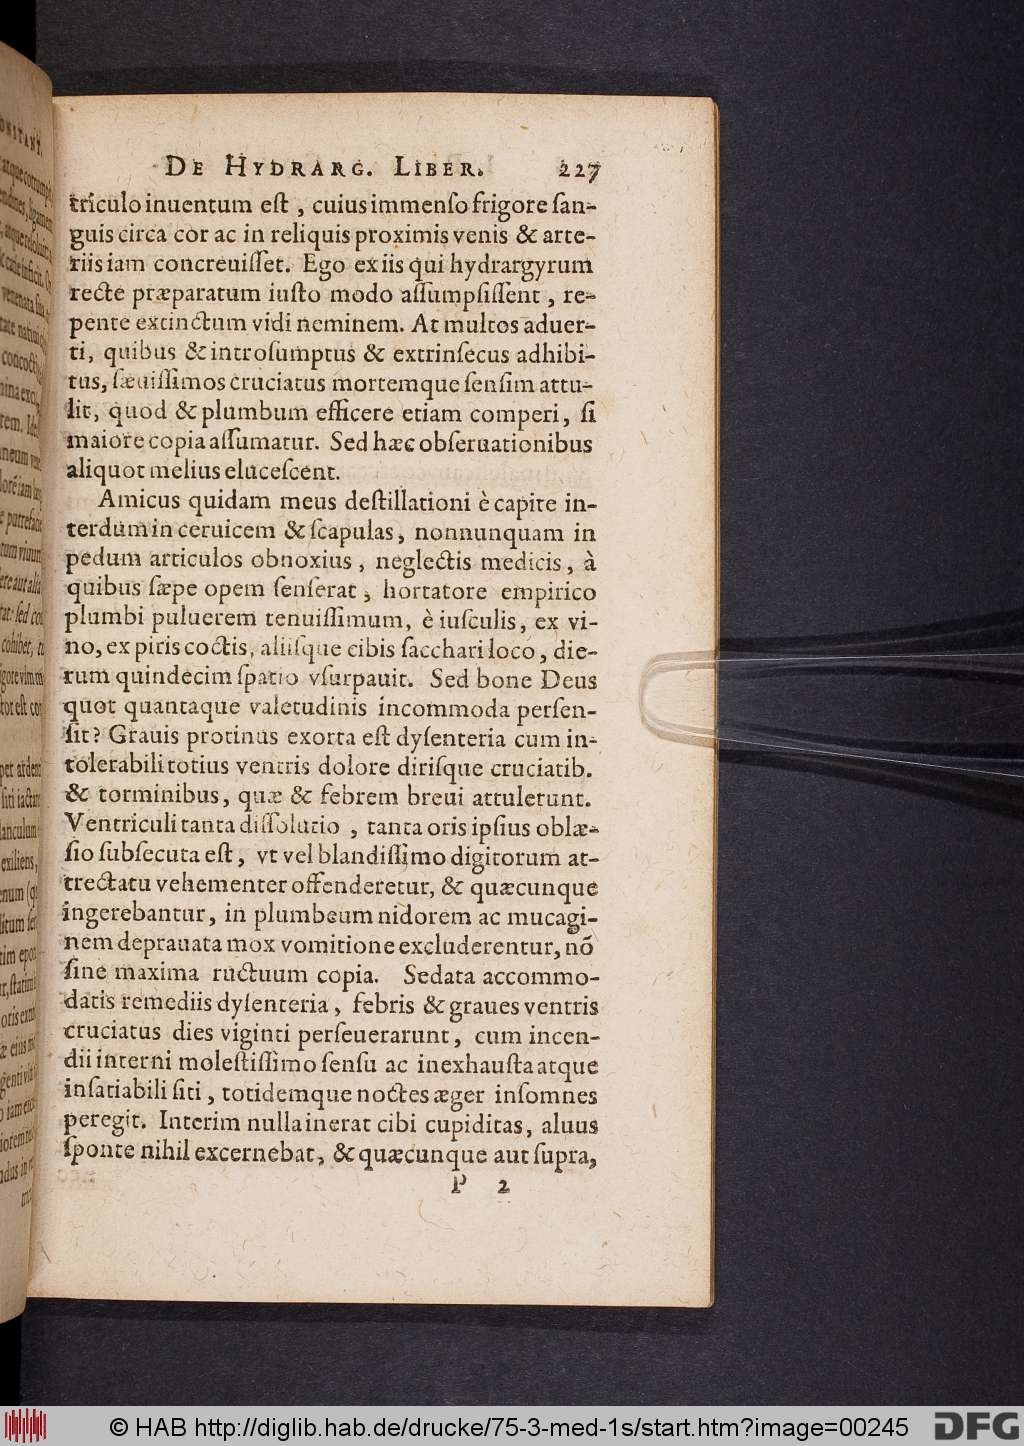 DE HYDRARG. LIBER. 227
triculo inuentum eſt, cuius immenſo frigore ſan-
guis circa cor ac in reliquis proximis venis & arte-
riis iam concreuiſſet. Ego ex iis qui hydrargyrum
recte præparatum iuſto modo aſſumpſiſſent, re-
pente extinctum vidi neminem. At multos aduer-
ti, quibus & introſumptus & extrinſecus adhibi-
tus, ſæuiſſimos cruciatus mortemque ſenſim attu-
lit, quod & plumbum efficere etiam comperi, ſi
maiore copia aſſumatur. Sed hæc obſeruationibus
aliquot melius eluceſcent.
Amicus quidam meus deſtillationi è capite in-
terdum in ceruicem & ſcapulas, nonnunquam in
pedum articulos obnoxius, neglectis medicis, à
quibus ſæpe opem ſenſerat, hortatore empirico
plumbi puluerem tenuiſſimum, è iuſculis, ex vi-
no, ex piris coctis, aliiſque cibis ſacchari loco, die-
rum quindecim ſpatio vſurpauit. Sed bone Deus
quot quantaque valetudinis incommoda perſen-
ſit? Grauis protinus exorta eſt dyſenteria cum in-
tolerabili totius ventris dolore diriſque cruciatib.
& torminibus, quæ & febrem breui attulerunt.
Ventriculi tanta diſſolutio, tanta oris ipſius oblæ-
ſio ſubſecuta eſt, vt vel blandiſſimo digitorum at-
trectatu vehementer offenderetur, & quæcunque
ingerebantur, in plumbeum nidorem ac mucagi-
nem deprauata mox vomitione excluderentur, nō
ſine maxima ructuum copia. Sedata accommo-
datis remediis dyſenteria, febris & graues ventris
cruciatus dies viginti perſeuerarunt, cum incen-
dii interni moleſtiſſimo ſenſu ac inexhauſta atque
inſatiabili ſiti, totidemque noctes æger inſomnes
peregit. Interim nulla inerat cibi cupiditas, aluus
ſponte nihil excernebat, & quæcunque aut ſupra,
P 2
© HAB http://diglib.hab.de/drucke/75-3-med-1s/start.htm?image=00245
DFG